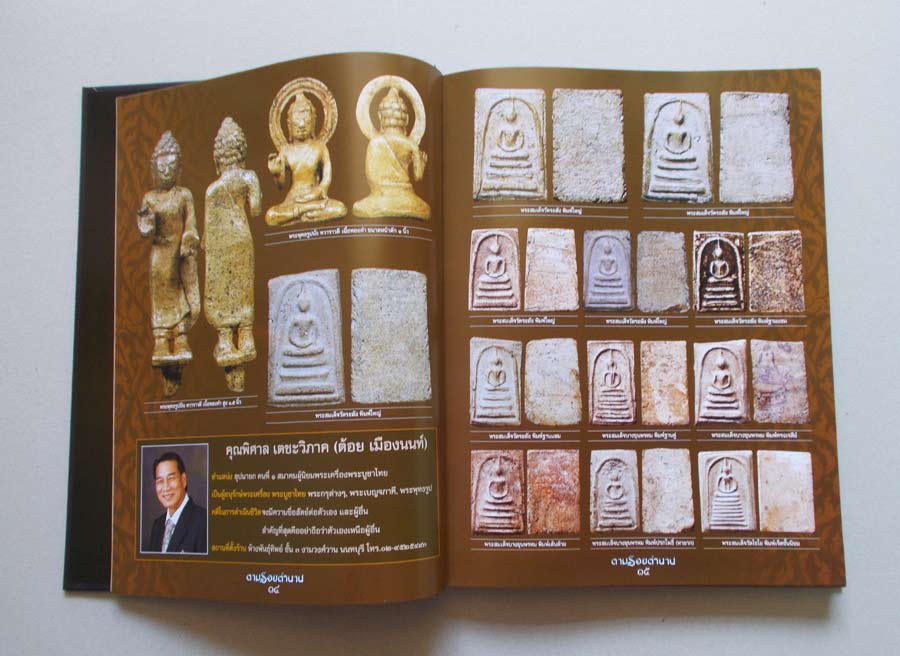 พระพุทธรูปนั่ง ทวาราวดี เนื้อทองคำ ขนาดหน้าตัก ๑ นิ้ว
พระพุทธรูปยืน ทวาราวดี เนื้อทองคำ สูง ๑.๕ นิ้ว
พระสมเด็จวัดระฆัง พิมพ์ใหญ่
คุณพิศาล เตชะวิภาค (ต้อย เมืองนนท์)
ตำแหน่ง อุปนายก คนที่ ๑ สมาคมผู้นิยมพระเครื่องพระบูชาไทย
เป็นผู้อนุรักษ์พระเครื่อง พระบูชาไทย พระกรุต่างๆ, พระเบญจภาคี, พระพุทธรูป
คติในการดำเนินชีวิต จงมีความซื่อสัตย์ต่อตัวเอง และผู้อื่น
สำคัญที่สุดคืออย่าถือว่าตัวเองเหนือผู้อื่น
สถานที่ตั้งร้าน ห้างพันธุ์ทิพย์ ชั้น ๓ งามวงศ์วาน นนทบุรี
ตามรอยตำนาน
๑๔
พระสมเด็จวัดระฆัง พิมพ์ใหญ่
พระสมเด็จวัดระฆัง พิมพ์ใหญ่
พระสมเด็จวัดระฆัง พิมพ์ใหญ่
พระสมเด็จวัดระฆัง พิมพ์ใหญ่
พระสมเด็จวัดระฆัง พิมพ์ฐานแซม
พระสมเด็จวัดระฆัง พิมพ์ฐานแซม
พระสมเด็จบางขุนพรหม พิมพ์ฐานคู่
พระสมเด็จบางขุนพรหม พิมพ์ทรงเจดีย์
พระสมเด็จบางขุนพรหม พิมพ์เส้นด้าย
พระสมเด็จบางขุนพรหม พิมพ์ปรกโพธิ์ (หายาก)
พระสมเด็จวัดไชโย พิมพ์เจ็ดชั้นนิยม
ตามรอยตำนาน
๑๕